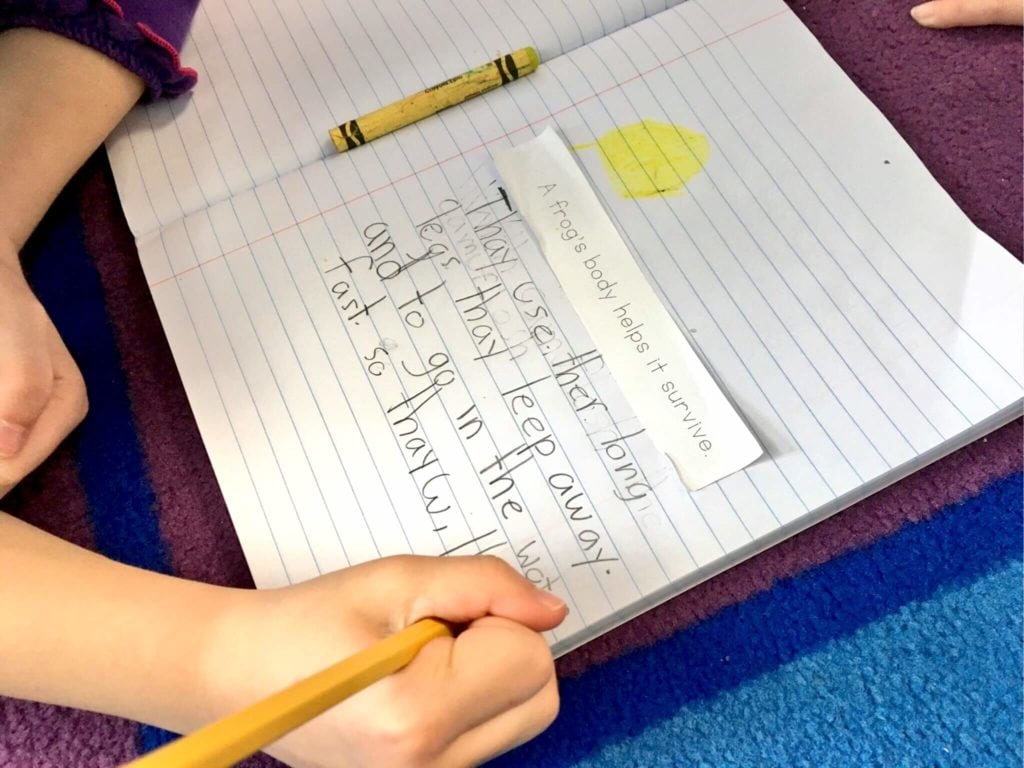 A frog's body helps it survive.
Thay use ther long
legs thay leep away.
and to go in the
fast. so thay